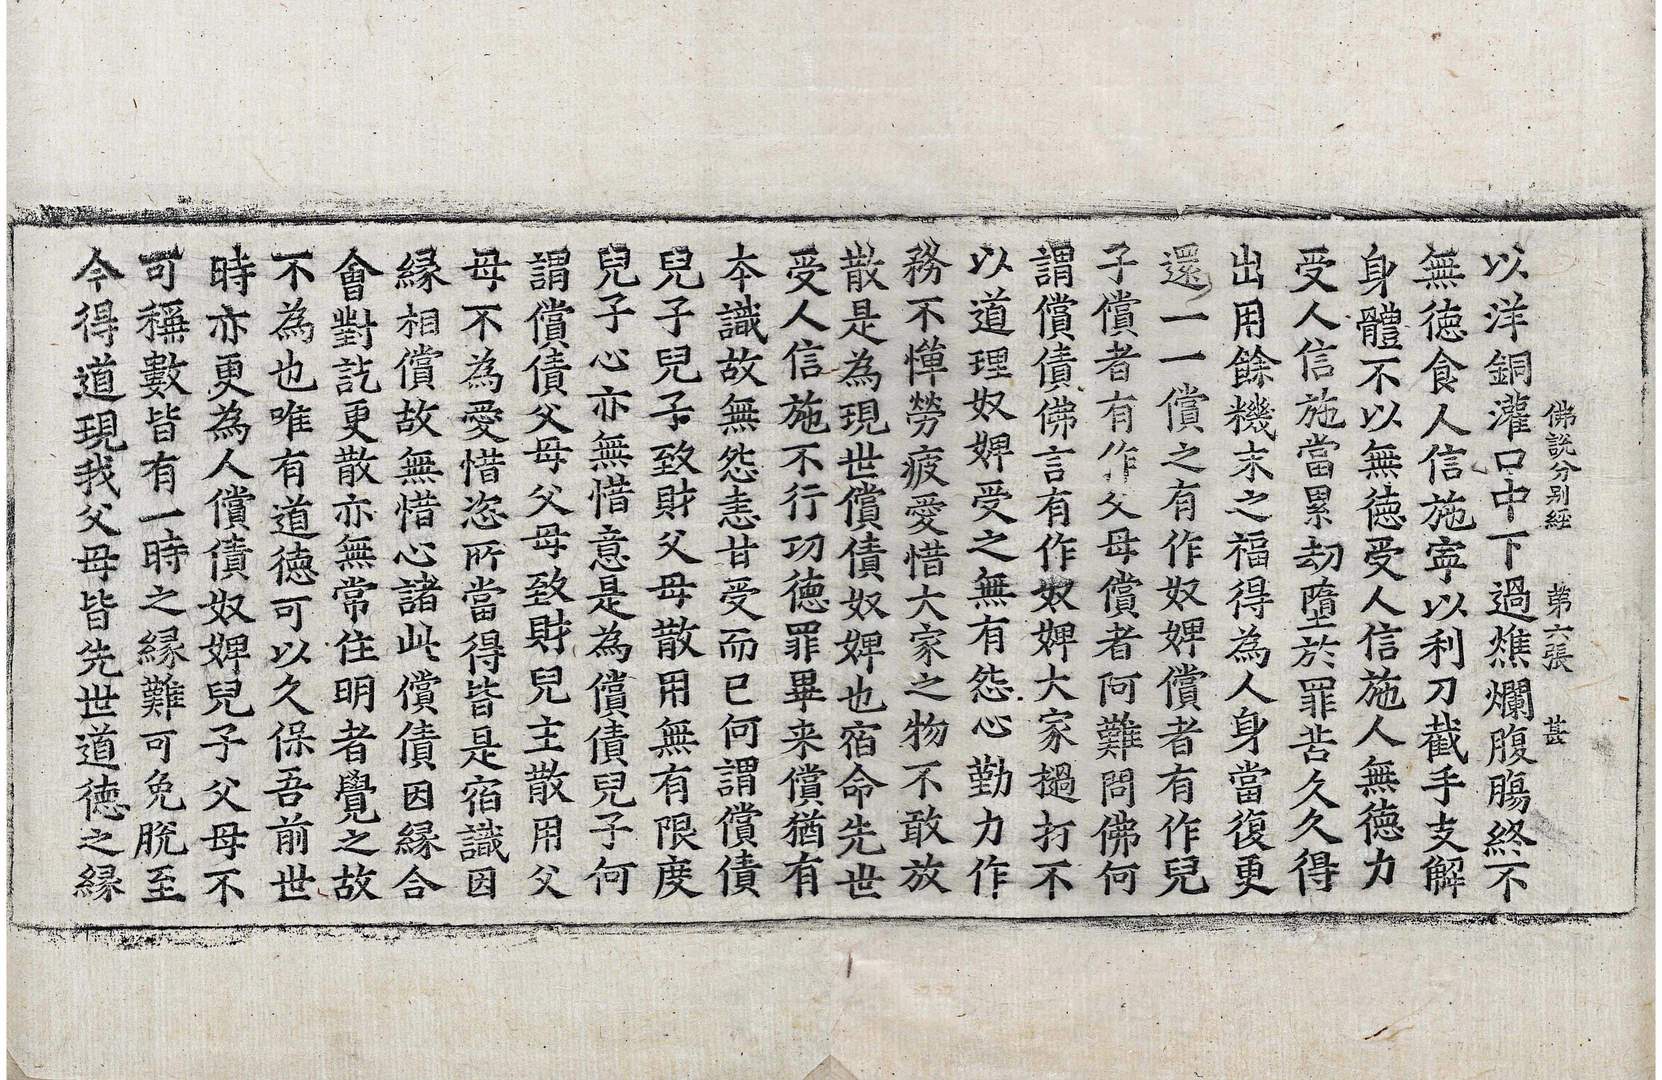 佛說分別經　第六張　甚
以洋銅灌口中下過燋爛腹腸終不
無徳食人信施寧以利刀截手支解
身體不以無徳受人信施人無徳力
受人信施當累劫墮於罪苦久久得
出用餘機末之福得為人身當復更
還一一償之有作奴婢償者有作兒
子償者有作父母償者阿難問佛何
謂償債佛言有作奴婢大家撾打不
以道理奴婢受之無有怨心勤力作
務不憚勞疲愛惜大家之物不敢放
散是為現世償債奴婢也宿命先世
受人信施不行功徳罪畢来償猶有
本識故無怨恚甘受而已何謂償債
兒子兒子致財父母散用無有限度
兒子心亦無惜意是為償債兒子何
謂償債父母父母致財兒主散用父
母不為愛惜恣所當得皆是宿識因
縁相償故無惜心諸此償債因縁合
會對訖更散亦無常住明者覺之故
不為也唯有道徳可以久保吾前世
時亦更為人償債奴婢兒子父母不
可稱數皆有一時之縁難可免脫至
今得道現我父母皆先世道徳之縁